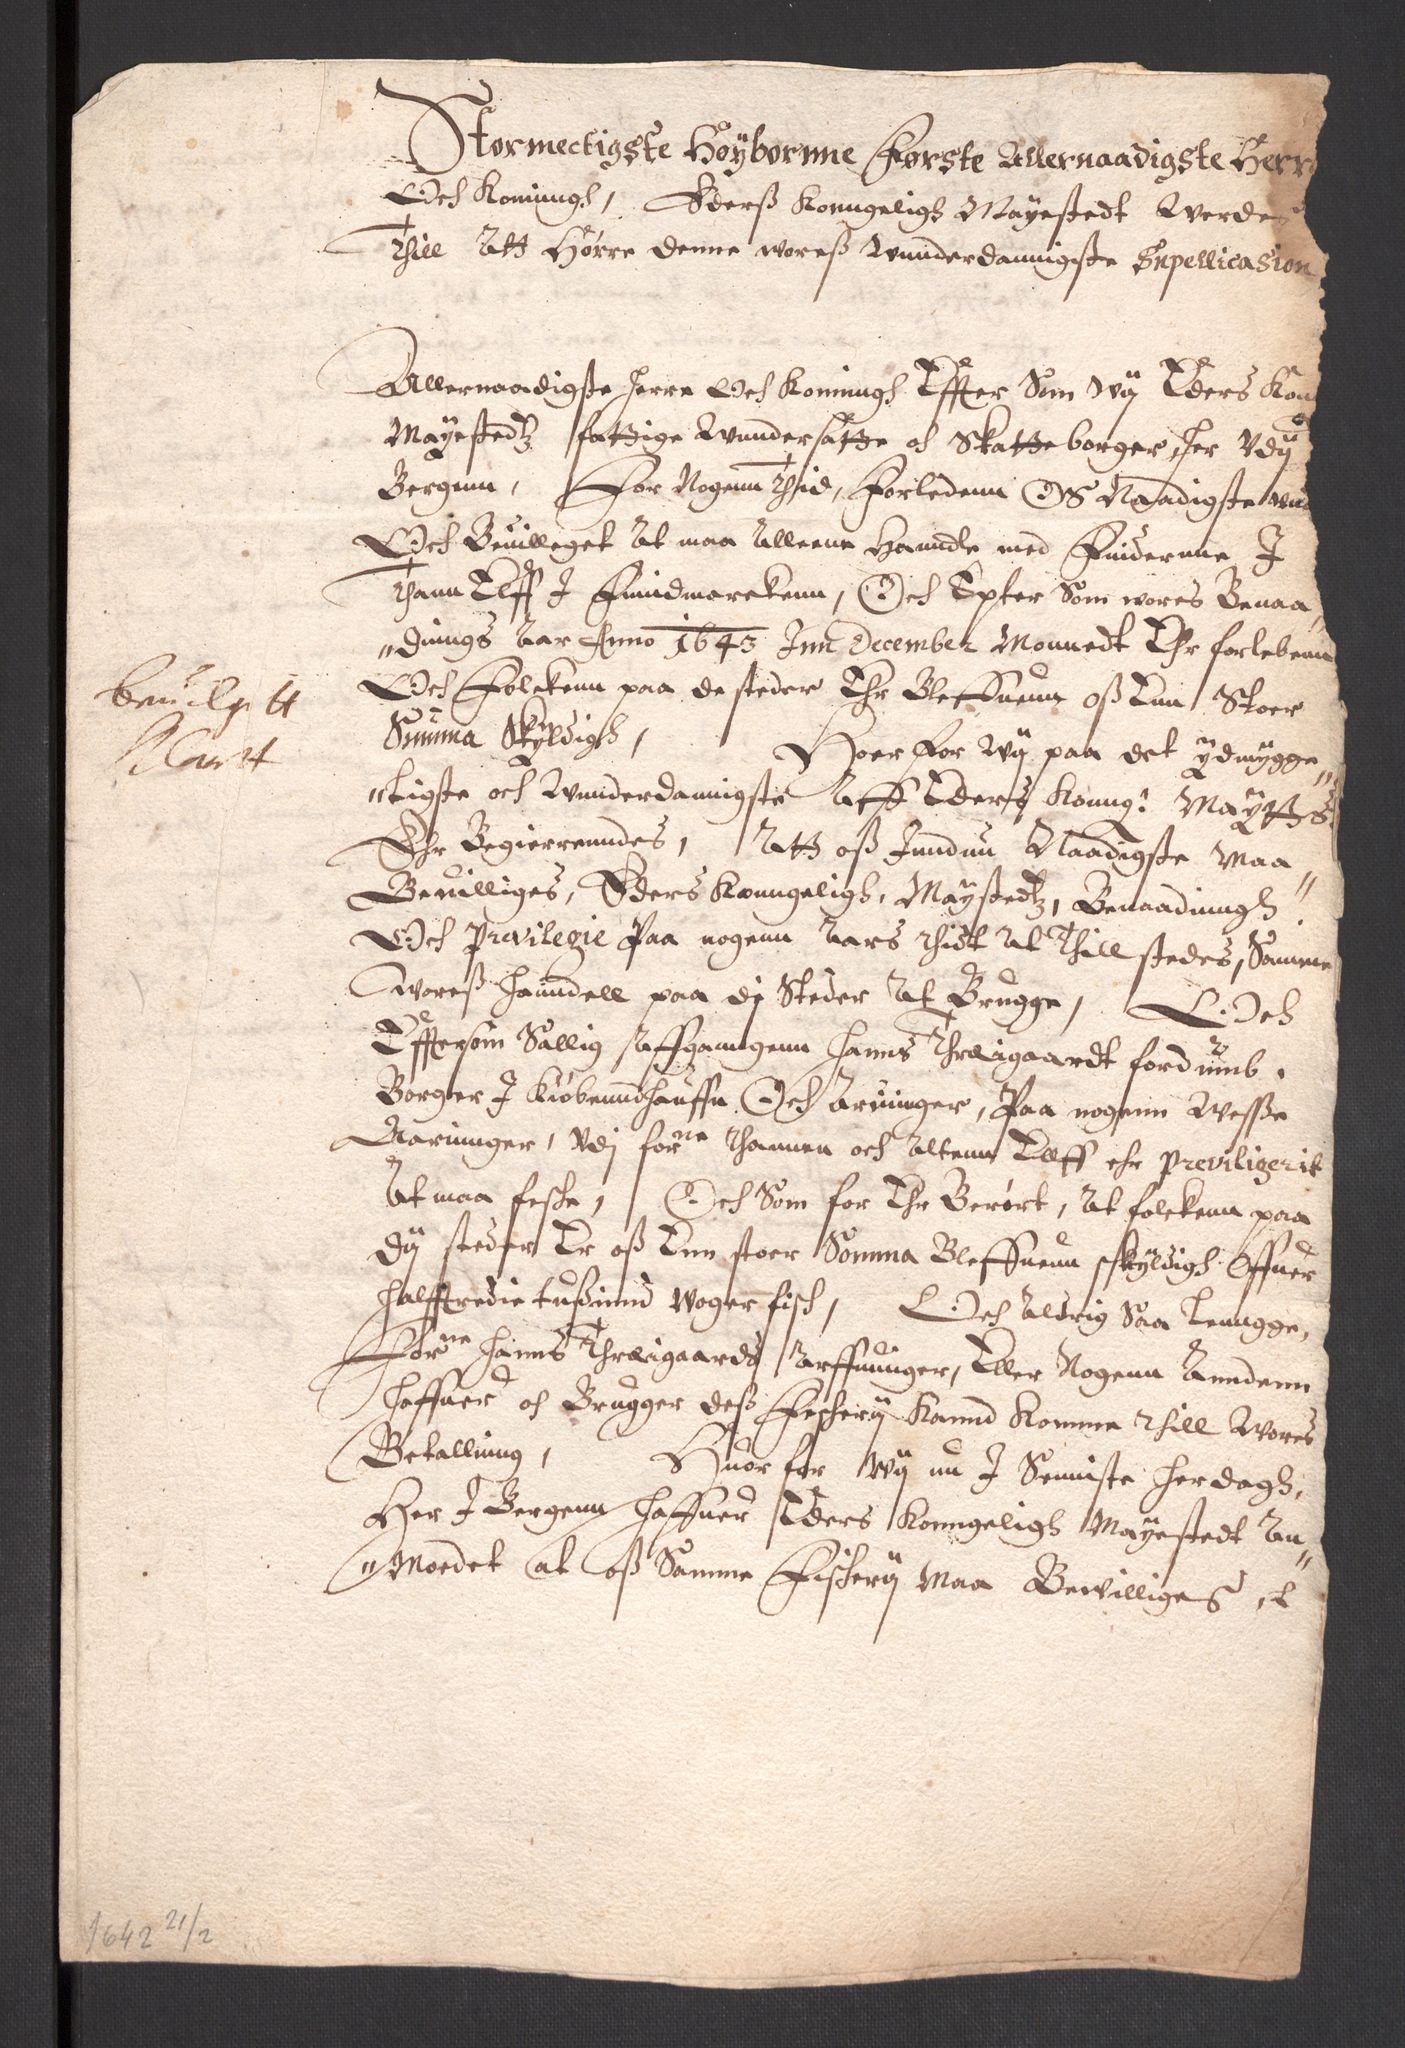 Stormectigste Høÿbornne Første Allernaadigste Herr
Och Konningh, Ederß Konngeligh Mayestedt Werdes
Thill Att Hørre denne woreß Wnnderdannigste Supellicasion
Allernaadigste herre Och Konningh Effter Som Wÿ Eders Kon
Mayestedtz fattige Wnndersatte och Skatte borger her Vdÿ
Bergenn, For Nogenn Thid, forledenn OS Naadigste und
Och Beuilleget At maa Alleene Hanndle med Finderne I
Thann Elff I Finndmarckenn, Och Epter Som wores Benaa„
„dinngs Aar Anno 1643 Inn December Monnedt Ehr forlebenn
Och Folckenn paa de steder Ehr Bleffuenn oß Enn Stoer
Summa Skÿldigh, Hoer for Wÿ paa det Ydmygge„
„ligste och Wnnderdannigste Aff Eders Konng: Maÿttß
Ehr Begierenndes, Att oß Inndnu Naadigste Maa
Beuilliges, Eders Konngeligh, Maÿstedtz, Benaadinngh
Och Previlegie Paa nogenn Aars Thidt At Thill stedes, Samme
Woreß Hanndell paa di Steder At Brugge, Och
Effterson Sallig Affganngenn Hanns Threigaardt fordumb.
Borger I Kiøbenndhauffn Och Aruinger, Paa nogenn Wesse
Narinnger, Vdi forne Thannen och Altenn Elff ehr previligerit
At maa feske, Och Som for Ehr Berørt, At folckenn paa
dÿ steder Er oß Enn stoer Somma Bleffuenn skÿldigh Offuer
halfftredie tusinnd Woger fisch, Och Aldrig Saa Lenngge,
Forne Hanns Threigaards Arffuinger, Eller Nogenn Anndenn
Haffuer och Brugger deß Feskerÿ Kannd Komme Thill Wores
Betallinng, Huor for Wÿ nu I Senniste herdagh,
Her I Bergenn Haffuer Eders Konngeligh Mayestedt An„
„Moedet at oß Samme Fiskerÿ Maa Bewilliges, E
beuilget
1642 21/2